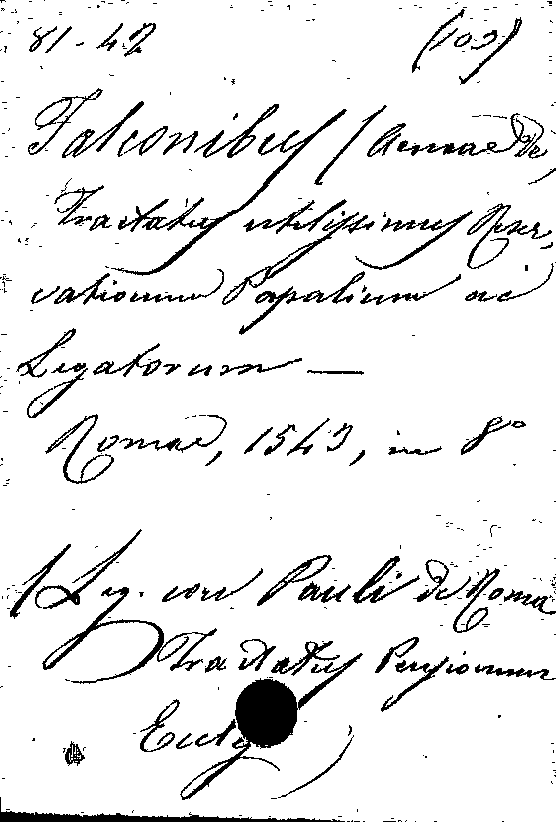 81-42 (103)
Falconibus (Aeneae De,
Tractatus utilissimus Reser,
vationum Papalium ac
Legatorum —
Romae, 1543, in 8°
(Leg. con Pauli de Roma
Tractatus Pensionum
Eccly